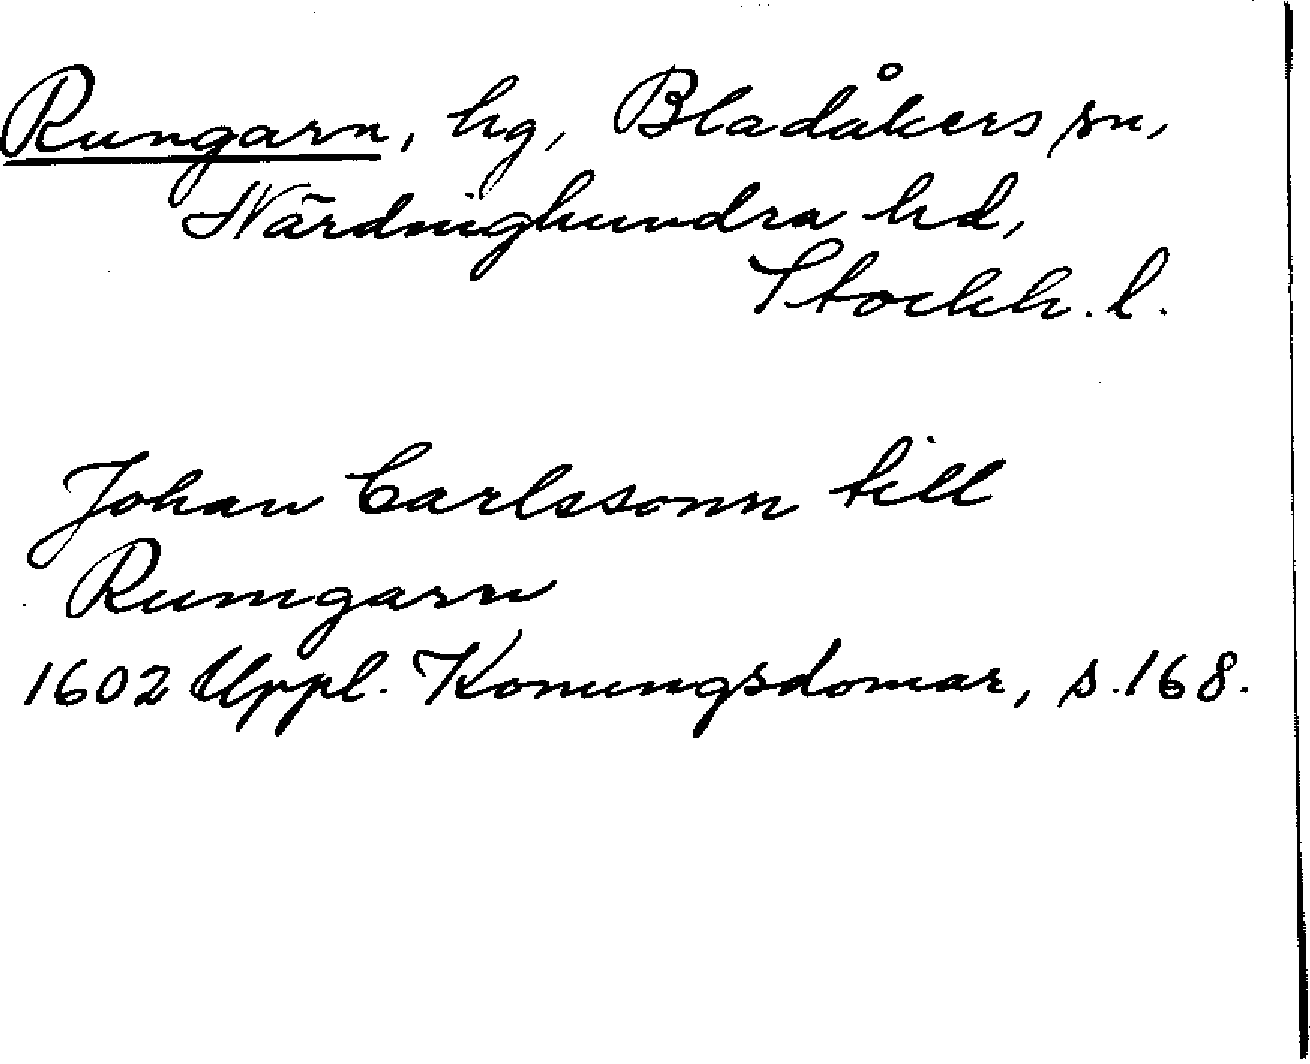 Rungarn, hg, Bladåkers sn,
Närdinghundra hd,
Stockh. l.
Johan Carlssonn till
Rumgarn
1602 Uppl. Konungsdomar, s. 168.